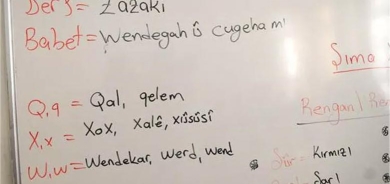 Ders = Zazaki
Babet = Wendegah û cugeham
Şima
Q,q = Qal, qelem
X,x = XoX, Xalê, xısûsî
W,w = Wendekar, Werd, wend
Rengan
Sûr = Kırmızı
Sarı